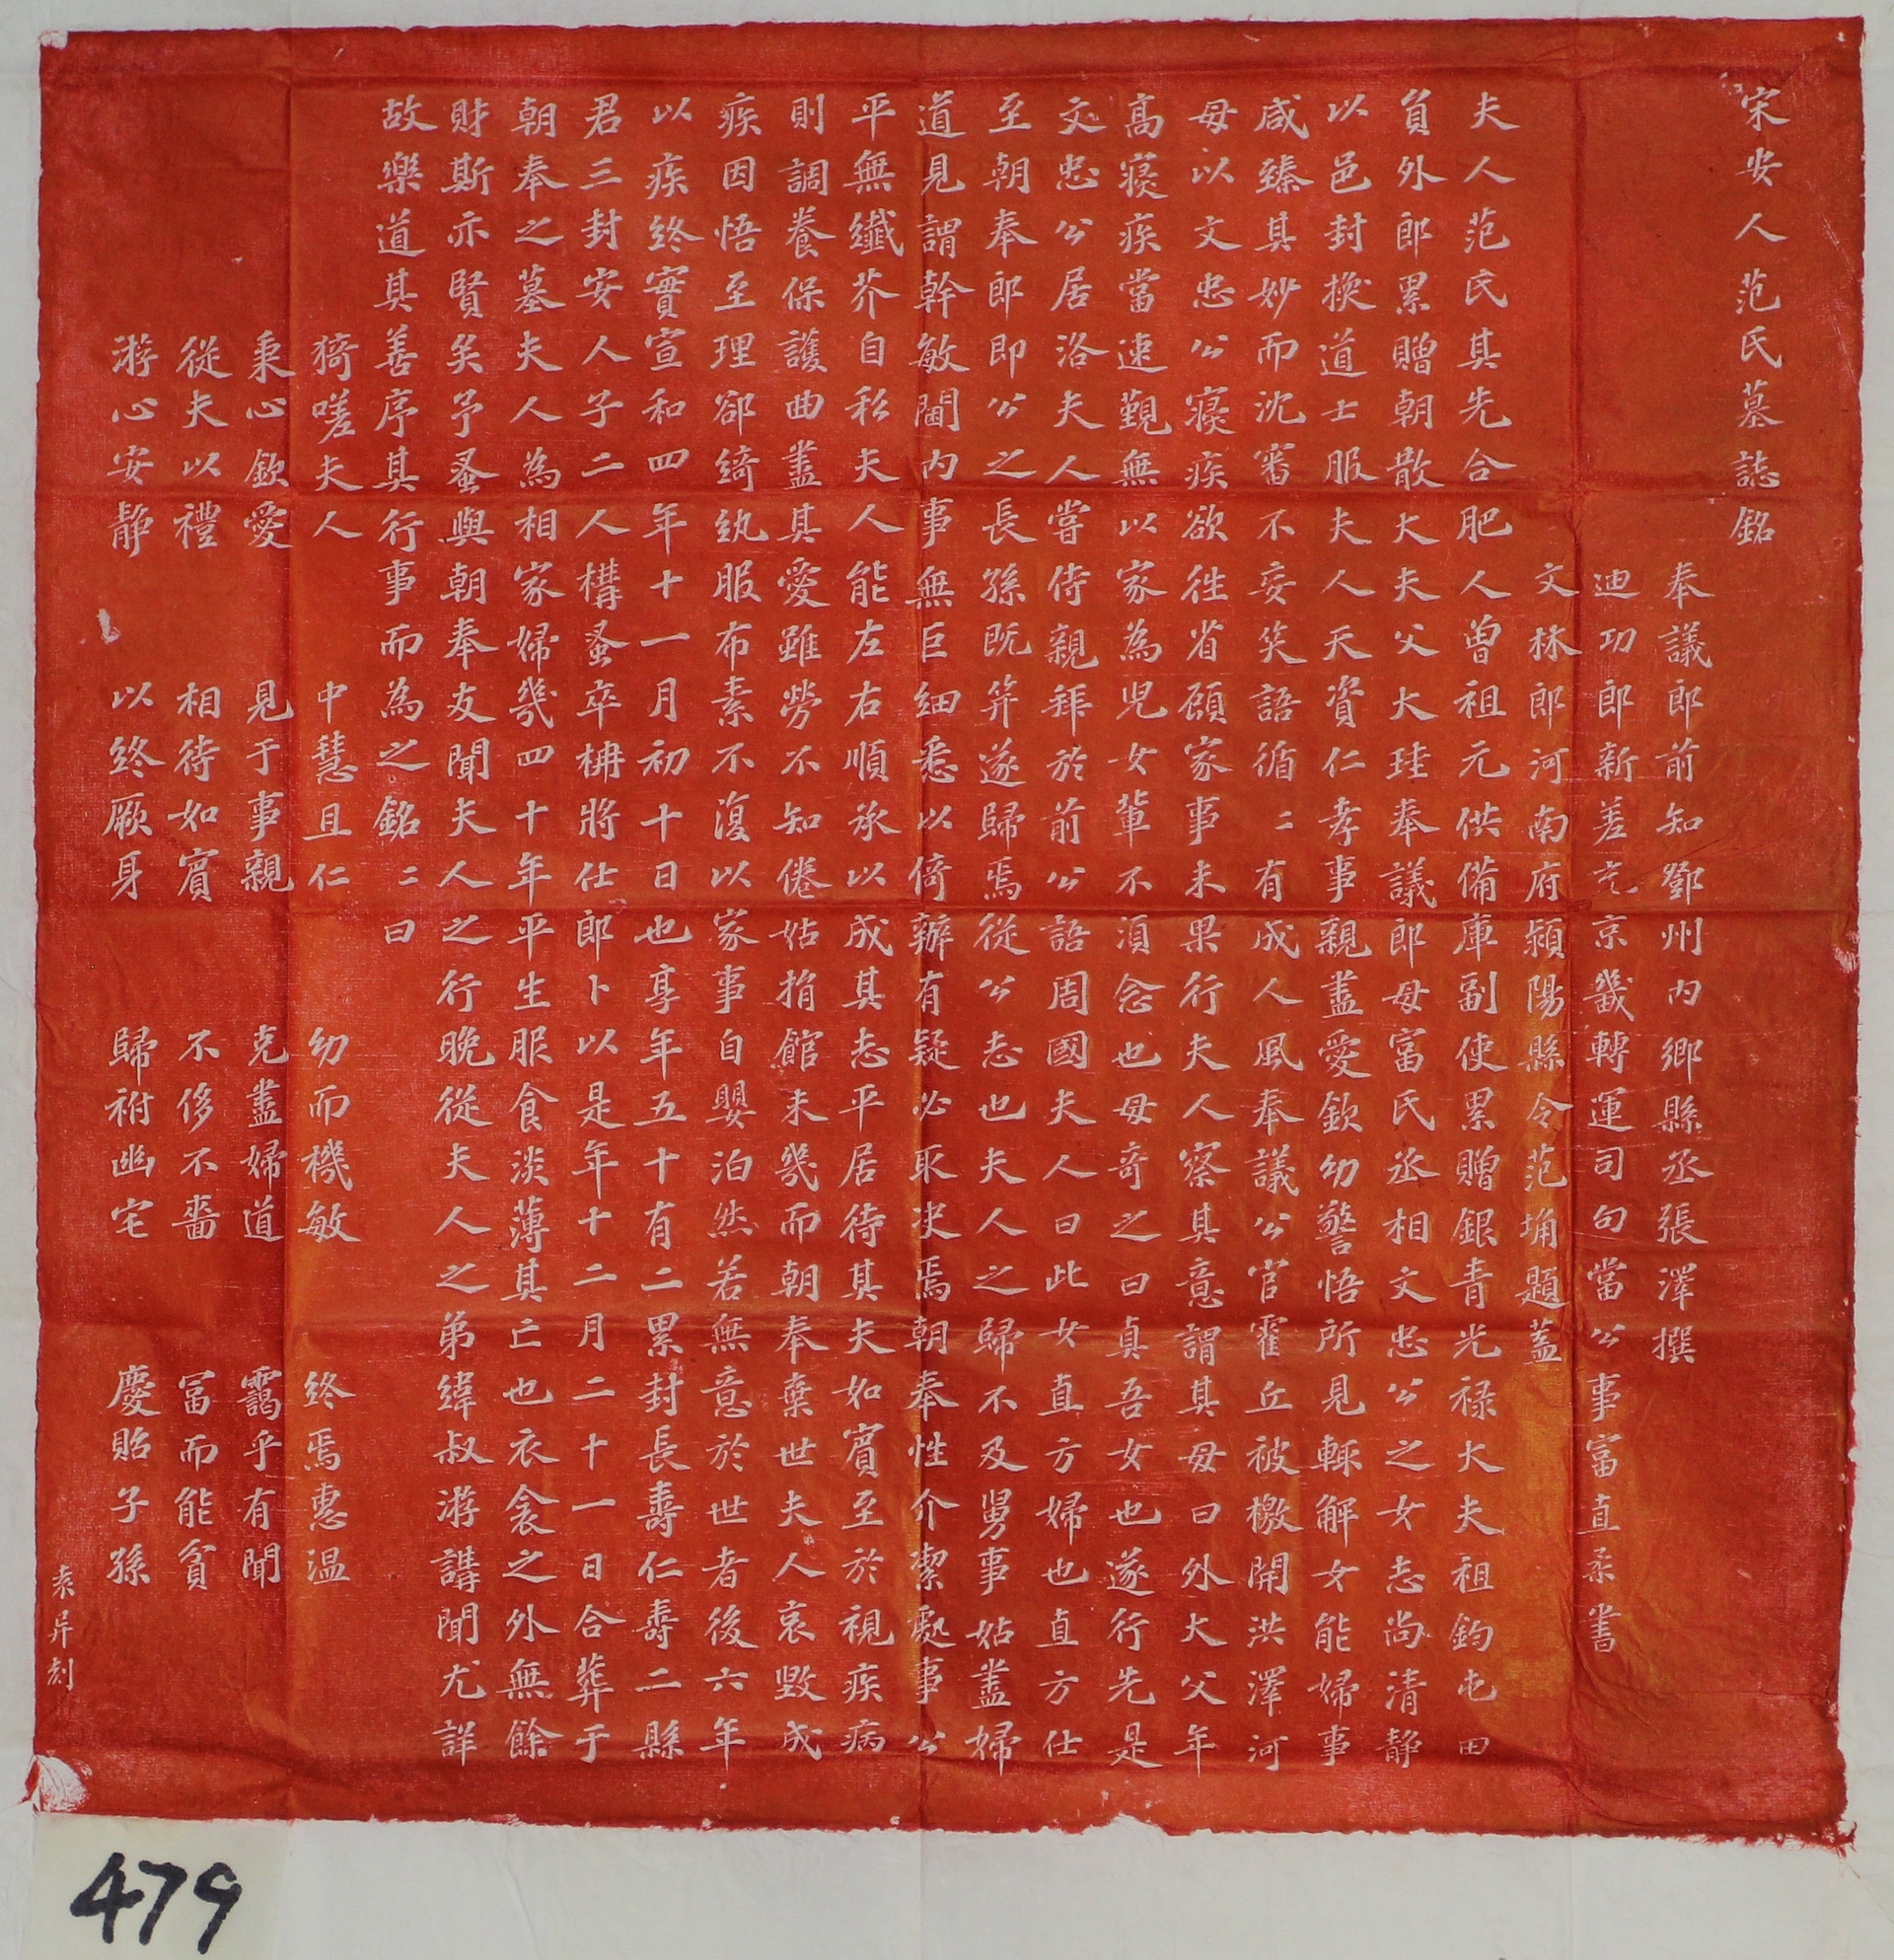 宋安人范氏墓誌銘
奉議郎前知鄧州內鄉縣丞張澤撰
迪功郎新差充京畿轉運司句當公事富直柔書
文林郎河南府潁陽縣令范埇題蓋
夫人范氏其先合肥人曾祖元供備庫副使累贈銀青光祿大夫祖鈞屯田
員外郎累贈朝散大夫父大珪奉議郎母富氏丞相文忠公之女志尚清靜
以邑封換道士服夫人天資仁孝事親盡愛欽幼警悟所見輒解女能婦事
咸臻其妙而沈審不妄笑語循二有成人風奉議公官霍丘被檄開洪澤河
母以文忠公寢疾欲徃省顧家事未果行夫人察其意謂其母曰外大父年
高寢疾當速覲無以家為兒女輩不須念也母奇之曰真吾女也遂行先是
文忠公居洛夫人嘗侍親拜於前公語周國夫人曰此女直方婦也直方仕
至朝奉郎即公之長孫既笄遂歸焉從公志也夫人之歸不及舅事姑盡婦
道見謂幹敏閫內事無巨細悉以倚辦有疑必取決焉朝奉性介潔處事公
平無纖芥自私夫人能左右順承以成其志平居待其夫如賓至於視疾病
則調養保護曲盡其愛雖勞不知倦姑捐館未幾而朝奉棄世夫人哀毀成
疾因悟至理卻綺紈服布素不復以家事自嬰泊然若無意於世者後六年
以疾終實宣和四年十一月初十日也享年五十有二累封長壽仁壽二縣
君三封安人子二人構蚤卒柟將仕郎卜以是年十二月二十一日合葬于
朝奉之墓夫人為相家婦幾四十年平生服食淡薄其亡也衣衾之外無餘
財斯亦賢矣予蚤與朝奉友聞夫人之行晚從夫人之弟緯叔游講聞尤詳
故樂道其善序其行事而為之銘二曰
猗嗟夫人 中慧且仁 幼而機敏 終焉惠温
秉心欽愛 見于事親 克盡婦道 靄乎有聞
從夫以禮 相待如賓 不侈不嗇 富而能貧
游心安靜 以終厥身 歸祔幽宅 慶貽子孫
袁昇刻
479